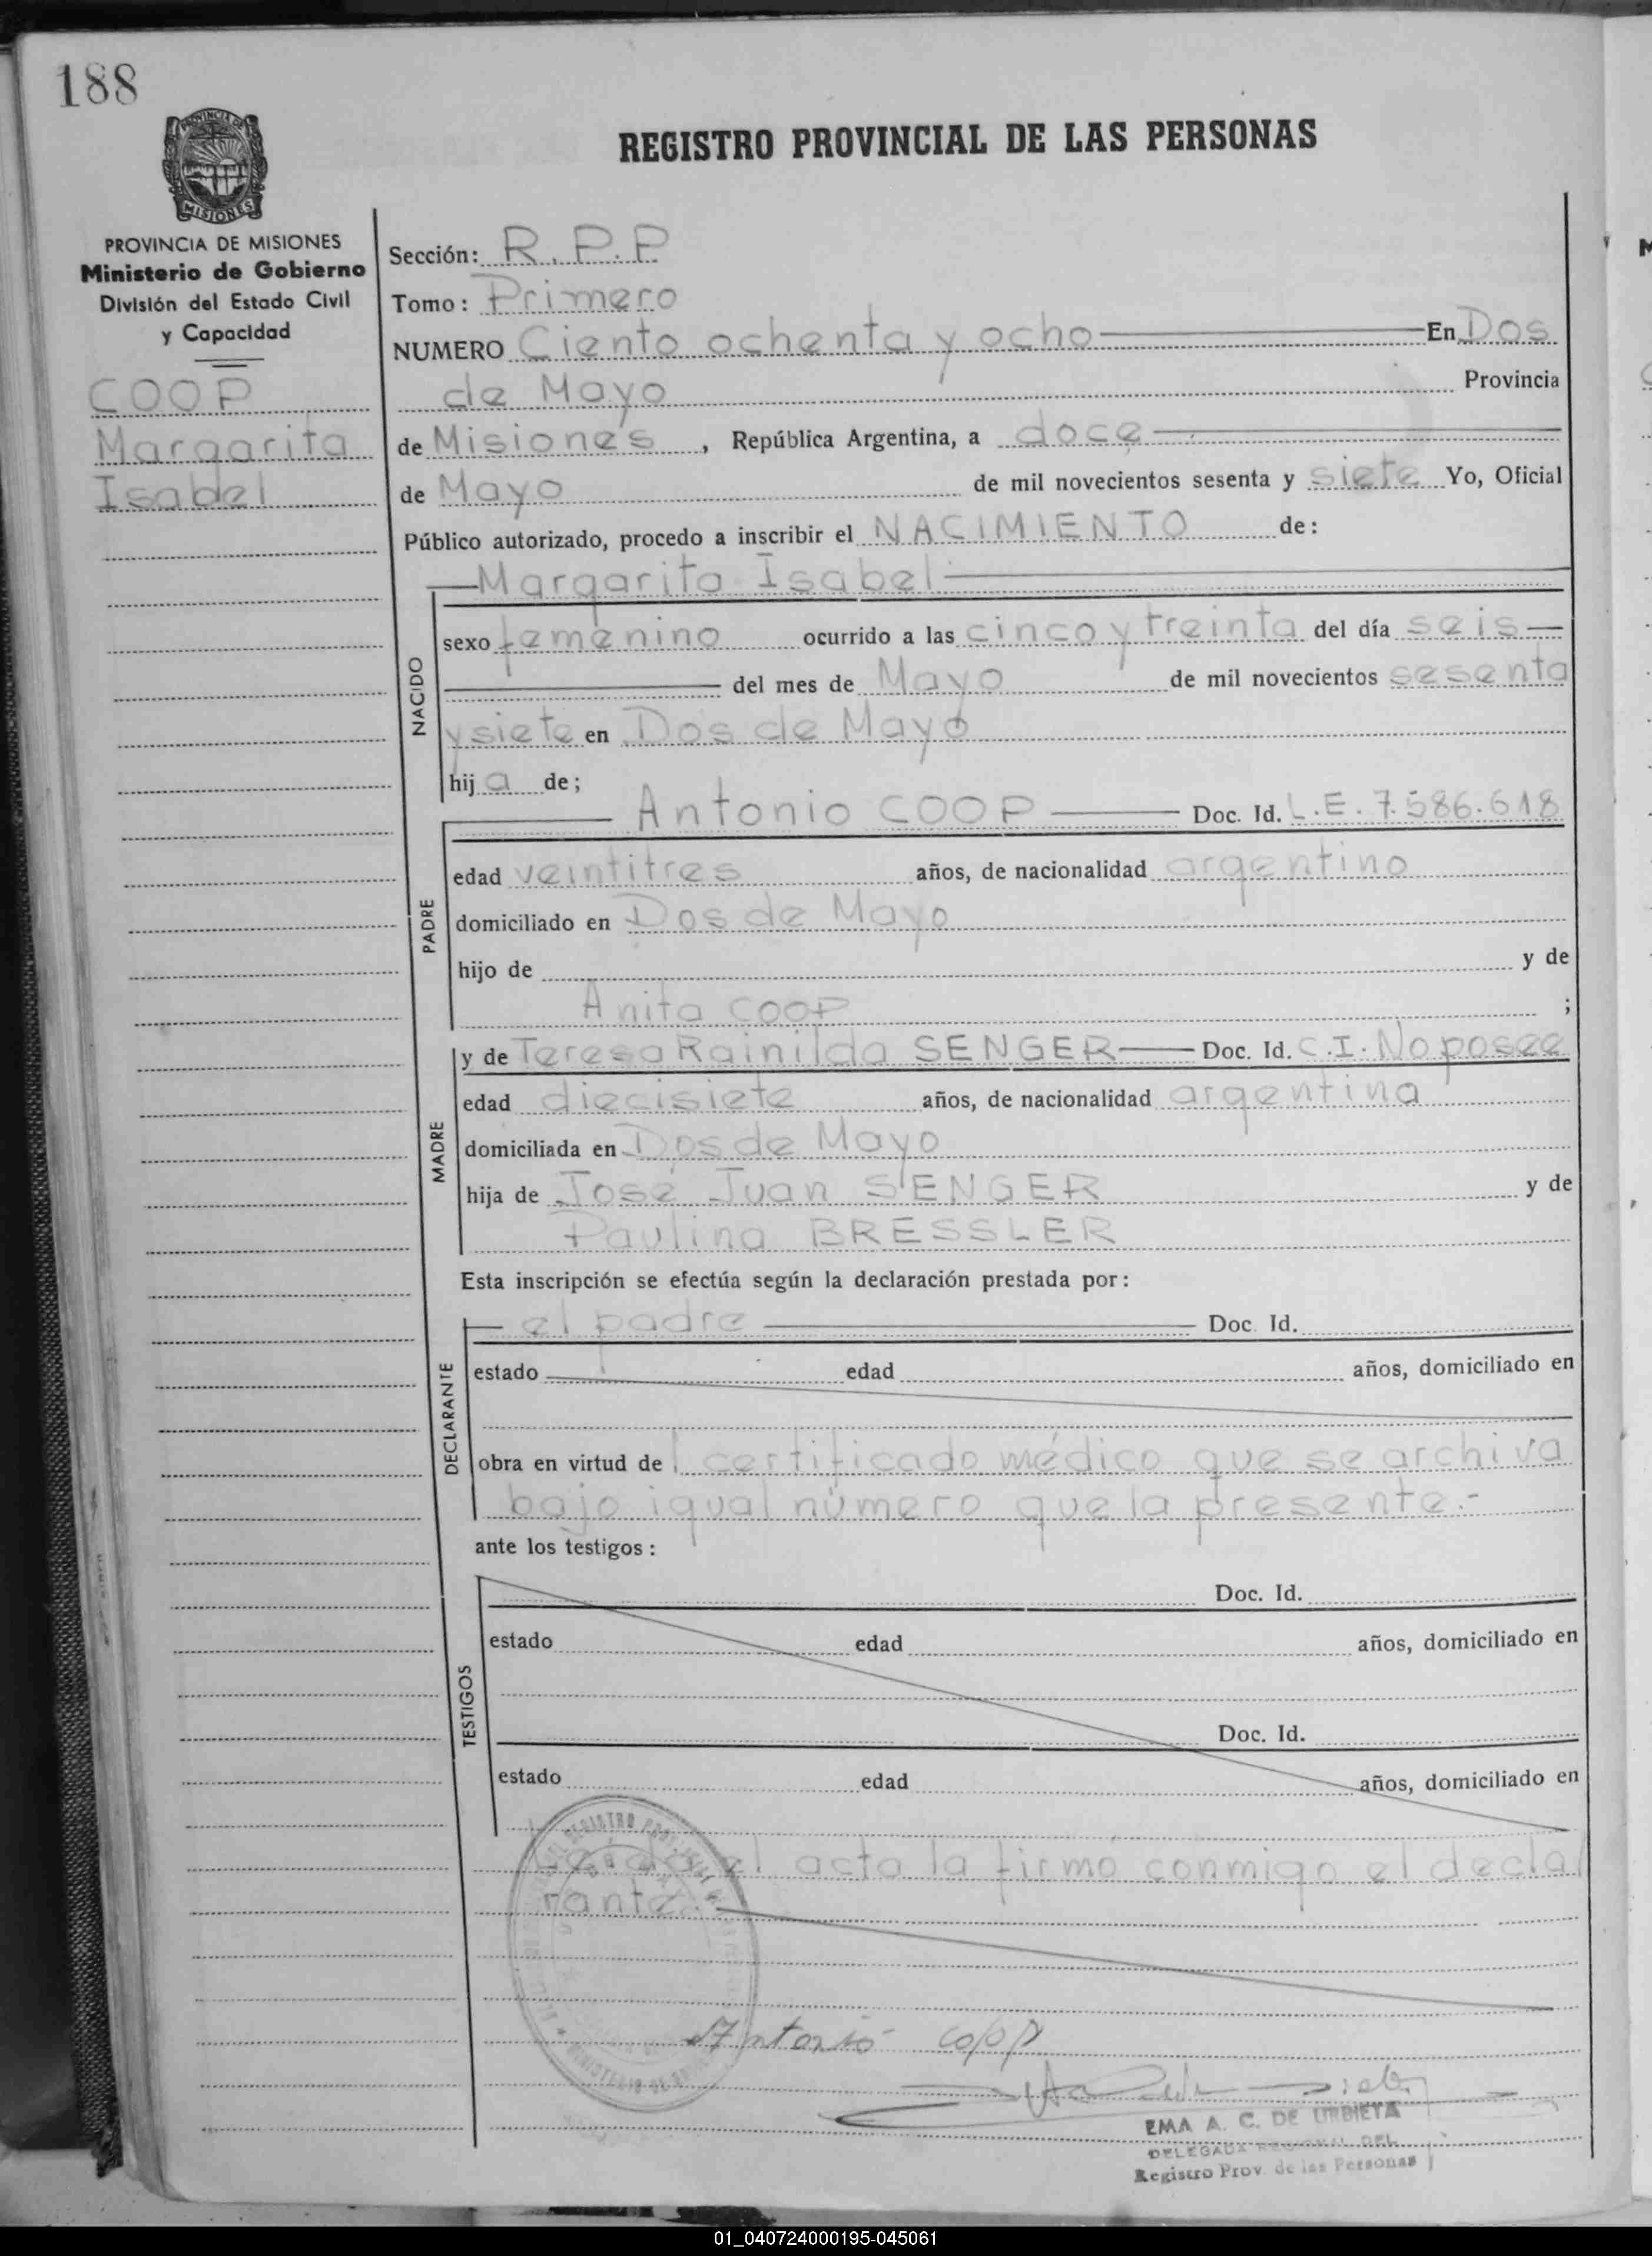 188
REGISTRO PROVINCIAL DE LAS PERSONAS
PROVINCIA DE MISIONES
Ministerio de Gobierno
División del Estado Civil
y Capacidad
COOP
Margarita
Isabel
Sección: R.P.P
Tomo: Primero
NUMERO Ciento ochenta y ocho En Dos
de Mayo Provincia
de Misiones, República Argentina, a doce
de Mayo de mil novecientos sesenta y siete Yo, Oficial
Público autorizado, procedo a inscribir el NACIMIENTO de:
Margarita Isabel
NACIDO
sexo femenino ocurrido a las cinco y treinta del día seis
del mes de Mayo de mil novecientos sesenta
y siete en Dos de Mayo
hija de;
PADRE
Antonio COOP Doc. Id. L.E. 7.586.618
edad veintitres años, de nacionalidad argentino
domiciliado en Dos de Mayo
hijo de y de
Anita COOP ;
MADRE
y de Teresa Rainilda SENGER Doc. Id. C.I. No posee
edad diecisiete años, de nacionalidad argentina
domiciliada en Dos de Mayo
hija de José Juan SENGER y de
Paulina BRESSLER
Esta inscripción se efectúa según la declaración prestada por:
DECLARANTE
el padre Doc. Id.
estado edad años, domiciliado en
obra en virtud del certificado médico que se archiva
bajo igual número que la presente.-
ante los testigos:
TESTIGOS
Doc. Id.
estado edad años, domiciliado en
Doc. Id.
estado edad años, domiciliado en
Leída el acta la firmó conmigo el decla
rante.-
Antonio coop
EMA A. C. DE URBIETA
DELEGADA REGIONAL DEL
Registro Prov. de las Personas
01_040724000195-045061